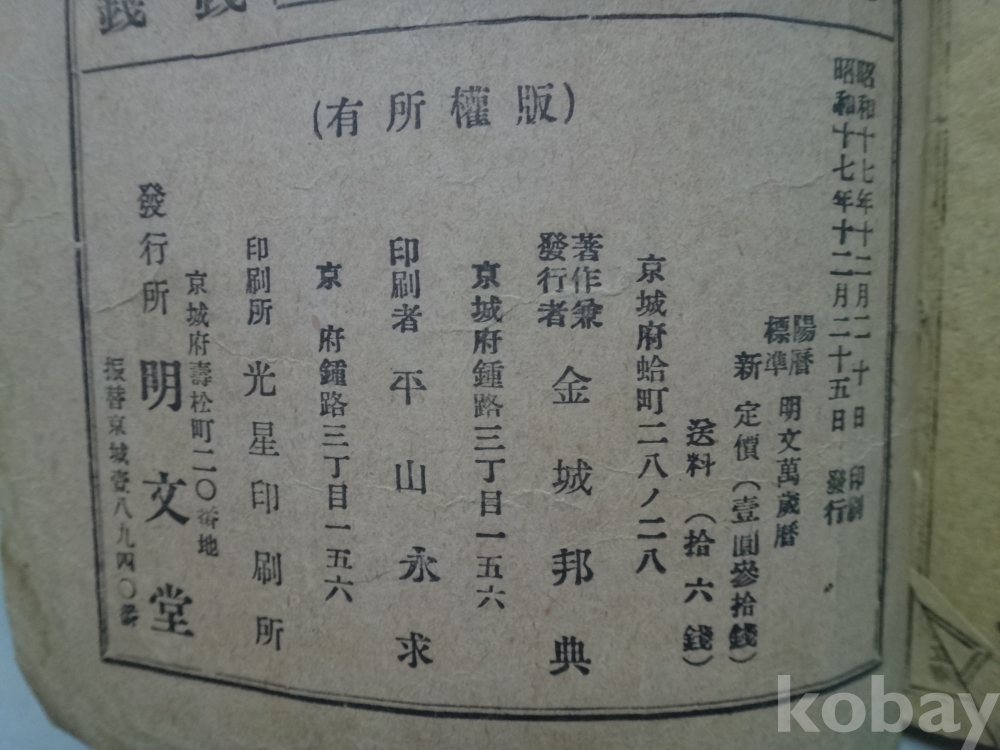 (版權所有)
昭和十七年十二月二十日 印刷
昭和十七年十二月二十五日 發行
陽曆標準 明文萬歲曆
新 定價(壹圓參拾錢)
送料(拾六錢)
京城府蛤町二八ノ二八
著作兼發行者 金城邦典
京城府鍾路三丁目一五六
印刷者 平山永求
京 府鍾路三丁目一五六
印刷所 光星印刷所
京城府壽松町二〇番地
發行所 明文堂
振替京城壹八九四〇番
kobay